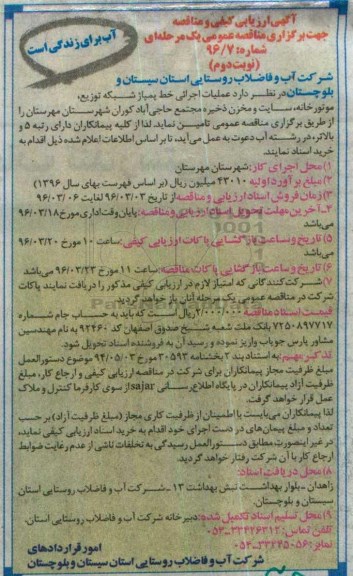 آگهی ارزیابی کیفی و مناقصه
جهت برگزاری مناقصه عمومی یک مرحله‌ای
شماره: ۹۶/۷
(نوبت دوم)
آب برای زندگی است
شرکت آب و فاضلاب روستایی استان سیستان و
بلوچستان در نظر دارد عملیات اجرائی خط پمپاژ شبکه توزیع،
موتورخانه، سایت و مخزن ذخیره مجتمع حاجی آباد کوران شهرستان مهرستان را
از طریق برگزاری مناقصه عمومی تامین نماید. لذا از کلیه پیمانکاران دارای رتبه ۵ و
بالاتر، در رشته آب دعوت به عمل می‌آید، تا بر اساس اطلاعات اعلام شده ذیل اقدام به
خرید اسناد نمایند.
۱) محل اجرای کار: شهرستان مهرستان
۲) مبلغ برآورد اولیه ۴۳۰۱۰ میلیون ریال (بر اساس فهرست بهای سال ۱۳۹۶)
۳) زمان فروش اسناد ارزیابی و مناقصه از تاریخ ۹۶/۰۳/۰۲ لغایت ۹۶/۰۳/۰۶
۴) آخرین مهلت تحویل اسناد ارزیابی و مناقصه: پایان وقت اداری مورخ ۹۶/۰۳/۱۸
می‌باشد
۵) تاریخ و ساعت بازگشایی پاکات ارزیابی کیفی: ساعت ۱۰ مورخ ۹۶/۰۳/۲۰
می‌باشد
۶) تاریخ و ساعت بازگشایی پاکات مناقصه: ساعت ۱۱ مورخ ۹۶/۰۳/۲۳ می‌باشد
۷) شرکت‌کنندگانی که امتیاز لازم در ارزیابی کیفی مذکور را دریافت نمایند پاکات
شرکت در مناقصه عمومی یک مرحله آنان باز خواهد گردید.
قیمت اسناد مناقصه ۲/۰۰۰/۰۰۰ ریال است که باید به حساب جام شماره
۷۲۵۰۸۹۷۷۱۷ بانک ملت شعبه شیخ صدوق اصفهان کد ۹۲۴۶۰ به نام مهندسین
مشاور پارس جویاب واریز نموده و رسید آن به فروشنده اسناد تحویل شود.
تذکر مهم: به استناد بند ۲ بخشنامه ۳۰۵۹۳ مورخ ۹۴/۰۵/۰۳ موضوع دستورالعمل
مبلغ ظرفیت مجاز پیمانکاران برای شرکت در مناقصه ارزیابی کیفی و ارجاع کار، مبلغ
ظرفیت آزاد پیمانکاران در پایگاه اطلاع رسانی sajar از سوی کارفرما کنترل و ملاک
عمل قرار خواهد گرفت.
لذا پیمانکاران می‌بایست با اطمینان از ظرفیت کاری مجاز (مبلغ ظرفیت آزاد) بر حسب
تعداد و مبلغ پیمان‌های در دست اجرای خود اقدام به خرید اسناد ارزیابی کیفی نماید،
در غیر اینصورت مطابق دستورالعمل رسیدگی به تخلفات ناشی از عدم رعایت ضوابط
ارجاع کار با آن شرکت رفتار خواهد گردید.
۸) محل دریافت اسناد:
زاهدان - بلوار بهداشت نبش بهداشت ۱۳ - شرکت آب و فاضلاب روستایی استان
سیستان و بلوچستان.
۹) محل تسلیم اسناد تکمیل شده: دبیرخانه شرکت آب و فاضلاب روستایی استان.
تلفن تماس: ۳۳۴۲۶۳۱۲-۰۵۴
نمابر: ۳۳۴۴۵۰۵۶-۰۵۴
امور قراردادهای
شرکت آب و فاضلاب روستایی استان سیستان و بلوچستان